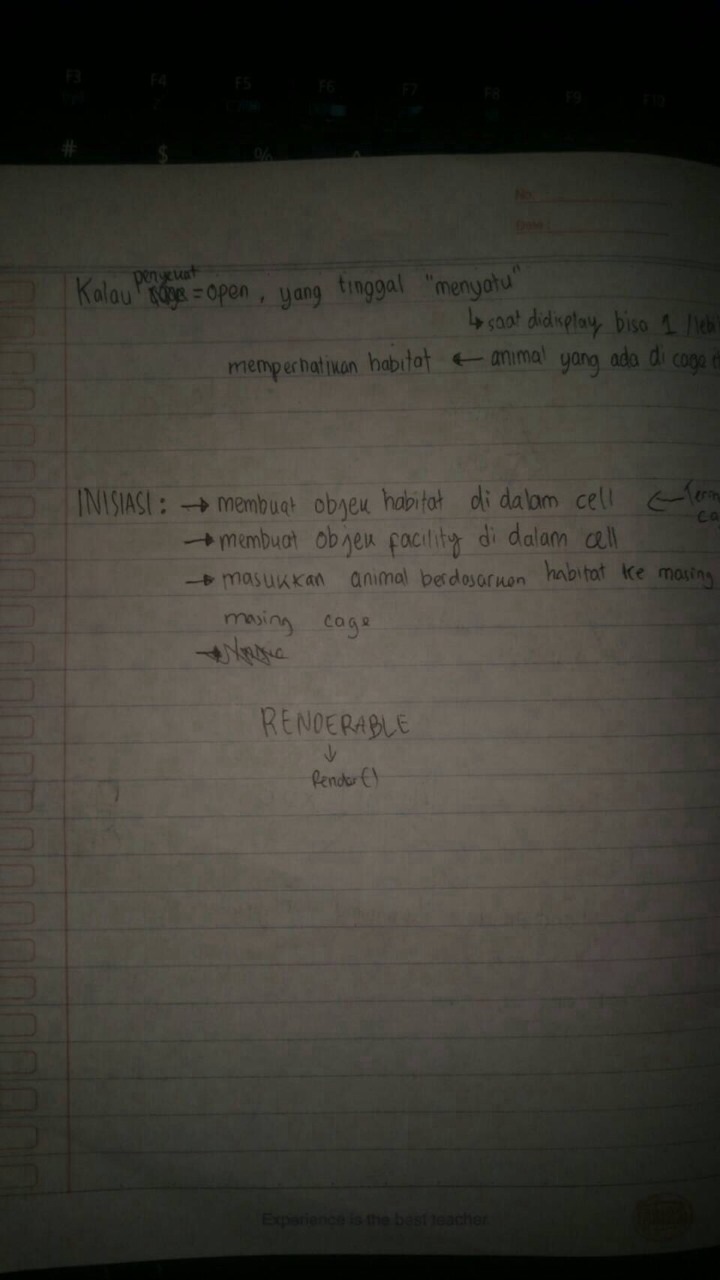 F3 F4 F5 F6 F7 F8 F9 F10
# $ %
No.
Date
penyewat
Kalau = open, yang tinggal "menyatu"
↳ saat didisplay bisa 1 /lebi
memperhatikan habitat ← animal yang ada di cage
INISIASI : → membuat objek habitat di dalam cell ←
→ membuat objek facility di dalam cell
→ masukkan animal berdasarkan habitat ke masing
masing cage
RENDERABLE
↓
Render()
Experience is the best teacher.